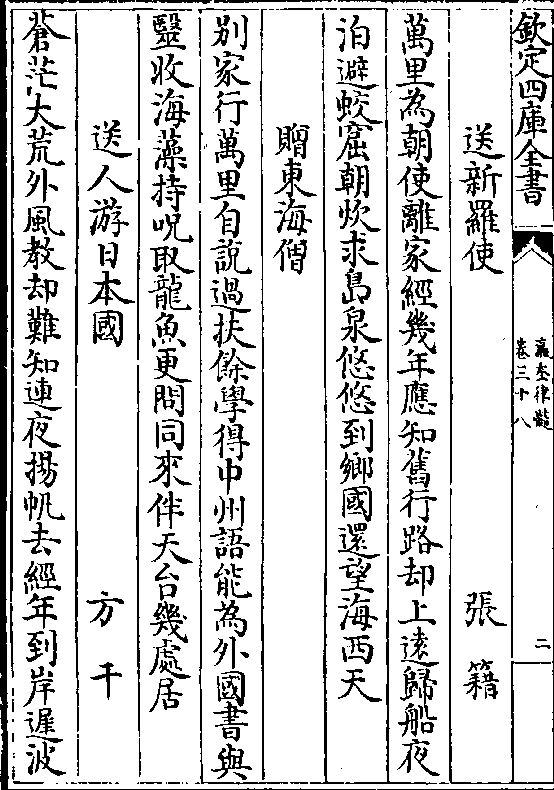 欽定四庫全書
瀛奎律髓
卷三十八
二
送新羅使 張籍
萬里為朝使離家經幾年應知舊行路却上逺歸船夜
泊避蛟窟朝炊求島泉悠悠到鄉國還望海西天
贈東海僧
别家行萬里自說過扶餘學得中州語能為外國書與
毉收海藻持呪取龍魚更問同來伴天台幾處居
送人游日本國 方干
蒼茫大荒外風教却難知連夜揚帆去經年到岸遲波